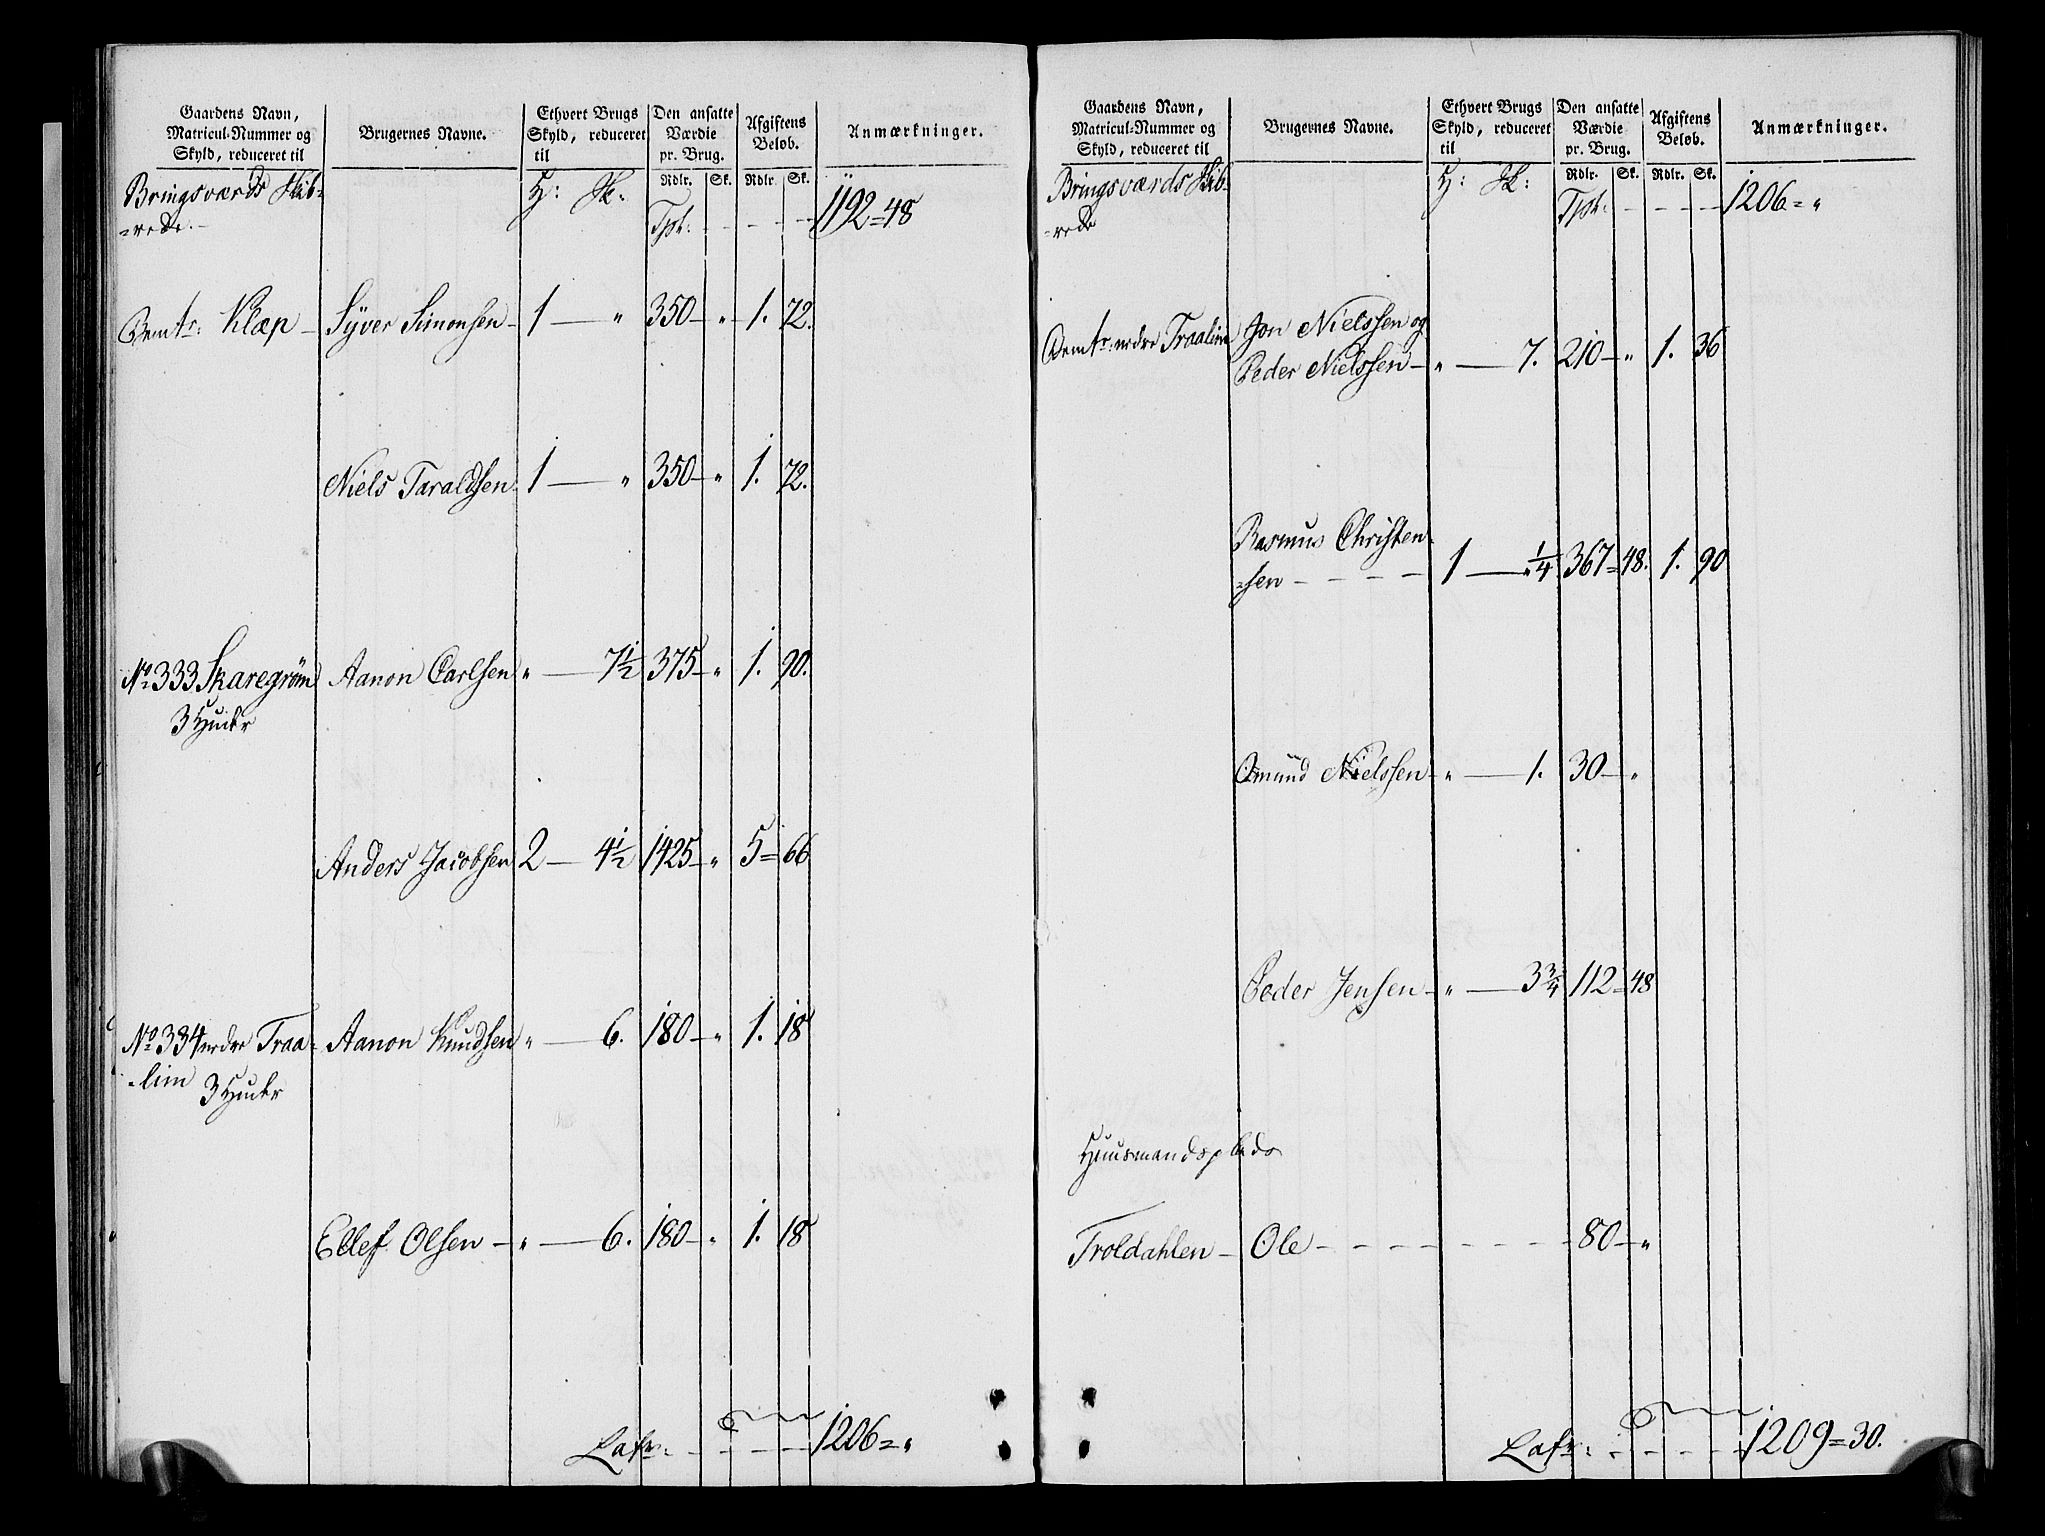 Gaardens Navn,
Matricul-Nummer og
Skyld, reduceret til
Brugernes Navne.
Ethvert Brugs
Skyld, reduceret
til
Den ansatte
Værdie
pr. Brug.
Afgiftens
Beløb.
Anmærkninger.
Rdlr. Sk. Rdlr. Sk.
Bringsværds Skib-
=rede.
H: Sk:
Tpt: 1192=48
Klæp Syver Simonsen 1 — „ 350 — „ 1. 72.
Niels Taraldsen 1 — „ 350 — „ 1. 72.
No 333 Skaregrøm Aanon Carlsen „ — 7½ 375 — „ 1. 90.
3 Huder
Anders Jacobsen 2 — 4½ 1425 — „ 5 = 66
No 334 nedre Traa- Aanon Knudsen „ — 6. 180 — „ 1. 18
-lim 3 Huder
Ellef Olsen — „ — 6. 180 — „ 1. 18
Lafr: 1206= „
Gaardens Navn,
Matricul-Nummer og
Skyld, reduceret til
Brugernes Navne.
Ethvert Brugs
Skyld, reduceret
til
Den ansatte
Værdie
pr. Brug.
Afgiftens
Beløb.
Anmærkninger.
Rdlr. Sk. Rdlr. Sk.
Bringsværds Skib-
=rede
H: Sk:
Tpt: 1206= „
nedre Traalim Jon Nielssen og
Peder Nielssen — „ — 7. 210 — „ 1. 36
Rasmus Christen-
=sen 1 — „ ¼ 367 = 48. 1. 90
Omund Nielssen — „ — 1. 30 — „
Peder Jensen — „ — 3¾ 112 = 48
Huusmandsplads
Troldahlen — Ole 80 — „
Lafr: 1209=30.